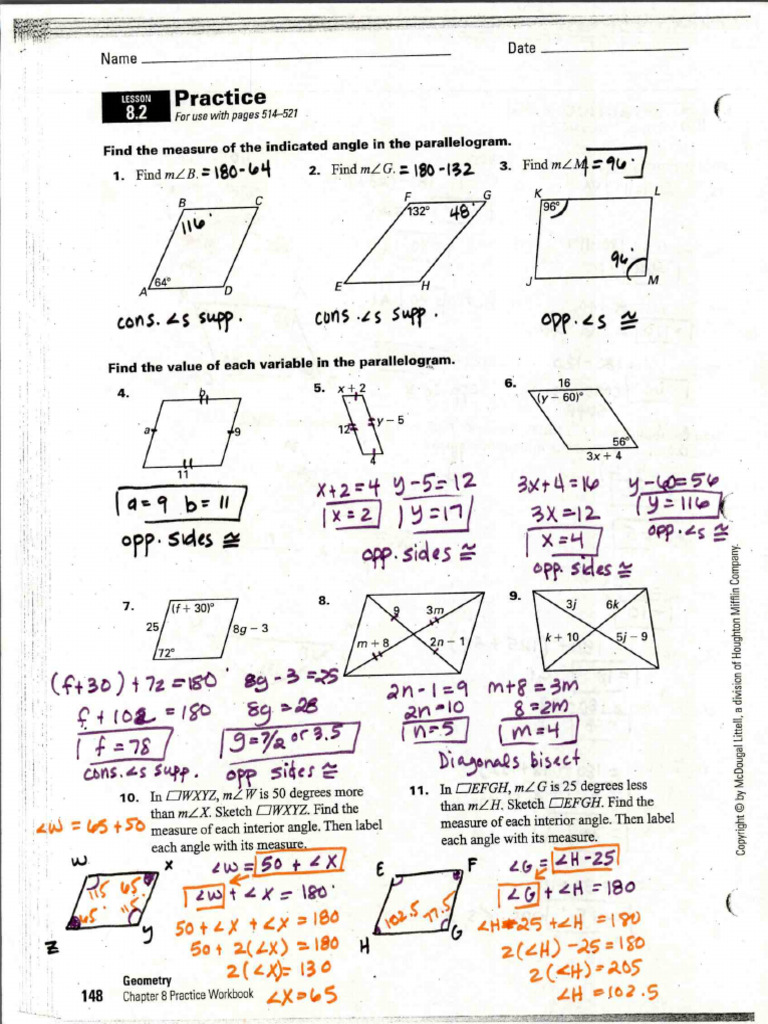 Name
Date
LESSON 8.2 Practice
For use with pages 514–521
Find the measure of the indicated angle in the parallelogram.
1. Find m∠B. = 180-64
2. Find m∠G. = 180-132
3. Find m∠M. = 96°
B C
116°
64°
A D
F G
132° 48°
E H
K L
96°
96°
J M
cons. ∠s supp.
cons. ∠s supp.
opp. ∠s ≅
Find the value of each variable in the parallelogram.
4.
b
a 9
11
5. x + 2
12 y − 5
4
6. 16
(y − 60)°
56°
3x + 4
a = 9 b = 11
opp. sides ≅
x+2=4 y-5=12
x=2 y=17
opp. sides ≅
3x+4=16 y-60=56
3x=12 y=116
x=4 opp.∠s ≅
opp. sides ≅
7. (f + 30)°
25 8g − 3
72°
8.
9 3m
m + 8 2n − 1
9.
3j 6k
k + 10 5j − 9
(f+30)+72=180° 8g-3=25
f+102=180 8g=28
f=78 g=7/2 or 3.5
cons. ∠s supp. opp sides ≅
2n-1=9 m+8=3m
2n=10 8=2m
n=5 m=4
Diagonals bisect
10. In ▱WXYZ, m∠W is 50 degrees more
than m∠X. Sketch ▱WXYZ. Find the
measure of each interior angle. Then label
each angle with its measure.
∠W = 65+50
W X
115 65°
65° 115°
Z Y
∠W = 50 + ∠X
∠W + ∠X = 180°
50+∠X + ∠X = 180
50+ 2(∠X) = 180
2(∠X) = 130
∠X=65
11. In ▱EFGH, m∠G is 25 degrees less
than m∠H. Sketch ▱EFGH. Find the
measure of each interior angle. Then label
each angle with its measure.
E F
102.5 77.5
H G
∠G = ∠H-25
∠G + ∠H = 180
∠H-25 +∠H = 180
2(∠H) -25=180
2(∠H)=205
∠H =102.5
Geometry
148 Chapter 8 Practice Workbook
Copyright © by McDougal Littell, a division of Houghton Mifflin Company.